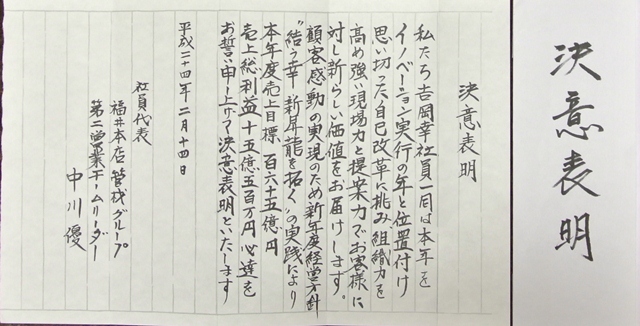 決意表明
決意表明
私たち吉岡幸社員一同は本年を
イノベーション実行の年と位置付け
思い切った自己改革に挑み組織力を
高め強い現場力と提案力でお客様に
対し新らしい価値をお届けします。
顧客感動の実現のため新年度経営方針
"結う幸 新昇龍を拓く"の実践により
本年度売上目標 百六十五億円
売上総利益 十五億五百万円 必達を
お誓い申し上げて決意表明といたします
平成二十四年二月十四日
社員代表
福井本店 管材グループ
第二営業チームリーダー
中川 優